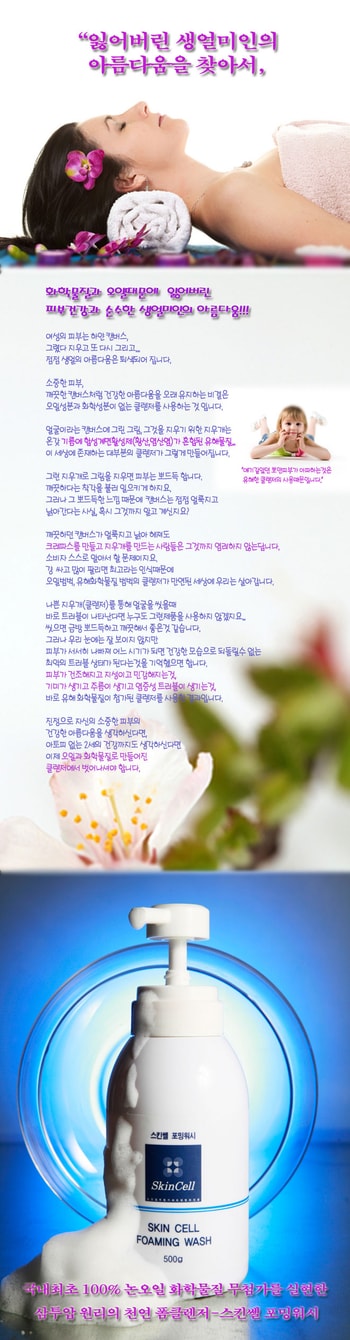 “잃어버린 생얼미인의
아름다움을 찾아서,
화학물질과 오일때문에 잃어버린
피부건강과 순수한 생얼미인의 아름다움!!!
여성의 피부는 하얀 캔버스,
그렸다 지우고 또 다시 그리고...
점점 생얼의 아름다움은 퇴색되어 집니다.
소중한 피부,
깨끗한 캔버스처럼 건강한 아름다움을 오래 유지하는 비결은
오일성분과 화학성분이 없는 클렌저를 사용하는 것 입니다.
얼굴이라는 캔버스에 그린 그림, 그것을 지우기 위한 지우개는
온갖 기름에 합성계면활성제(황산,염산염)가 혼합된 유해물질,,
이 세상에 존재하는 대부분의 클렌저가 그렇게 만들어집니다.
"애기같았던 뽀얀피부가 아파하는것은
유해한 클렌저의 사용때문입니다."
그런 지우개로 그림을 지우면 피부는 뽀드득 합니다.
깨끗하다는 착각을 불러 일으키게 하지요.
그러나 그 뽀드득한 느낌 때문에 캔버스는 점점 얼룩지고
낡아간다는 사실, 혹시 그것까지 알고 계신지요?
깨끗하던 캔버스가 얼룩지고 낡아 해져도
크레파스를 만들고 지우개를 만드는 사람들은 그것까지 염려하지 않는답니다.
소비자 스스로 알아서 할 문제이지요.
값 싸고 많이 팔리면 최고라는 인식때문에
오일범벅, 유해화학물질 범벅의 클렌저가 만연된 세상에 우리는 살아갑니다.
나쁜 지우개(클렌저)를 통해 얼굴을 씻을때
바로 트러블이 나타난다면 누구도 그런제품을 사용하지 않겠지요..
씻으면 금방 뽀드득하고 깨끗해서 좋은것 같습니다.
그러나 우리 눈에는 잘 보이지 않지만
피부가 서서히 나빠져 어느 시기가 되면 건강한 모습으로 되돌릴수 없는
최악의 트러블 상태가 된다는것을 기억했으면 합니다.
피부가 건조해지고 지성이고 민감해지는것,
기미가 생기고 주름이 생기고 염증성 트러블이 생기는것,
바로 유해 화학물질이 첨가된 클렌저를 사용한 결과입니다.
진정으로 자신의 소중한 피부의
건강한 아름다움을 생각하신다면,
아토피 없는 2세의 건강까지도 생각하신다면
이제 오일과 화학물질로 만들어진
클렌저에서 벗어나셔야 합니다.
스킨쎌 포밍워시
SkinCell
SKIN CELL
FOAMING WASH
500g
국내최초 100% 논오일 화학물질 무첨가를 실현한
삼투압 원리의 천연 폼클렌저-스킨쎌 포밍워시